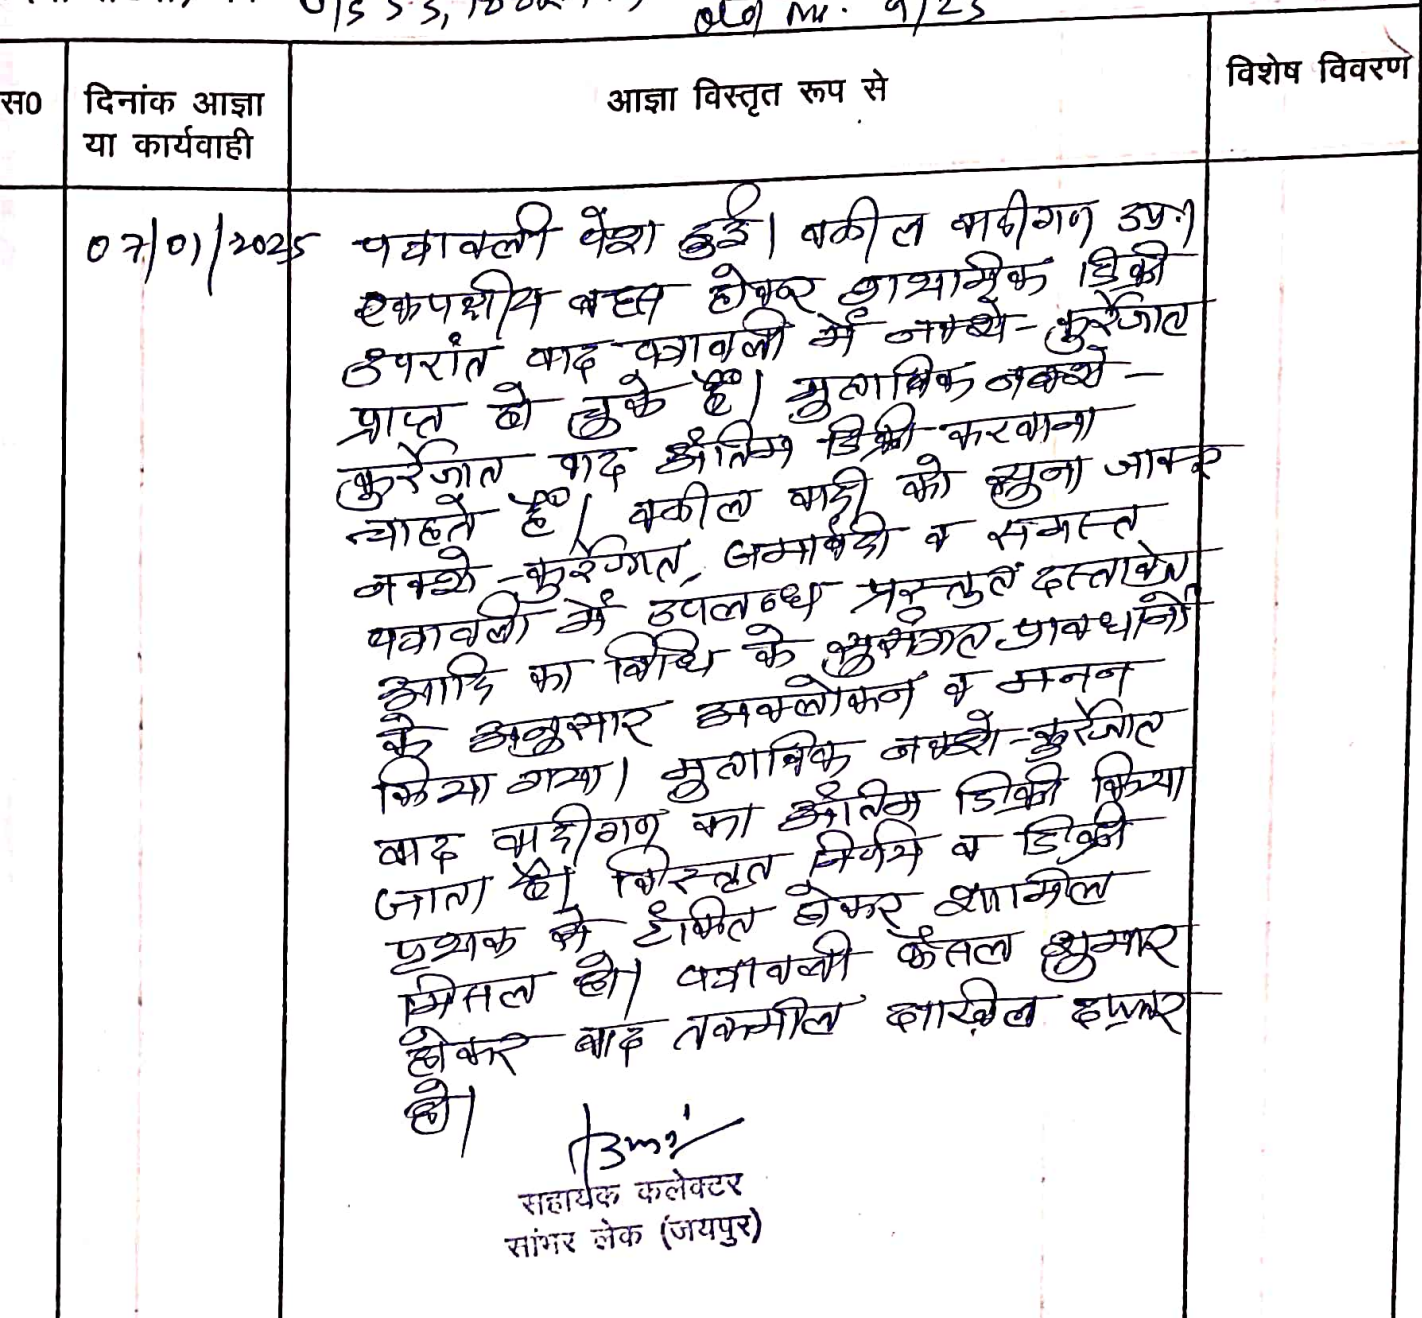 U/S 53,
स0 दिनांक आज्ञा या कार्यवाही आज्ञा विस्तृत रूप से विशेष विवरण
07/01/2025 पत्रावली पेश हुई। वकील वादीगण उप.।
एकपक्षीय बहस होकर प्राथमिक डिक्री
उपरांत वाद पत्रावली में नक्शे-कुर्रेजात
प्राप्त हो चुके हैं। मुताबिक नक्शे-
कुर्रेजात वाद अंतिम डिक्री करवाना
चाहते हैं। वकील वादी को सुना जाकर
नक्शे-कुर्रेजात, जमाबंदी व समस्त
पत्रावली में उपलब्ध प्रस्तुत दस्तावेज
आदि का विधि के सुसंगत प्रावधानों
के अनुसार अवलोकन व मनन
किया गया। मुताबिक नक्शे-कुर्रेजात
वाद वादीगण का अंतिम डिक्री किया
जाता है। विस्तृत निर्णय व डिक्री
पृथक से टंकित होकर शामिल
मिसल हो। पत्रावली फैसल शुमार
होकर बाद तकमील दाखिल दफ्तर
हो।
सहायक कलेक्टर
सांभर लेक (जयपुर)